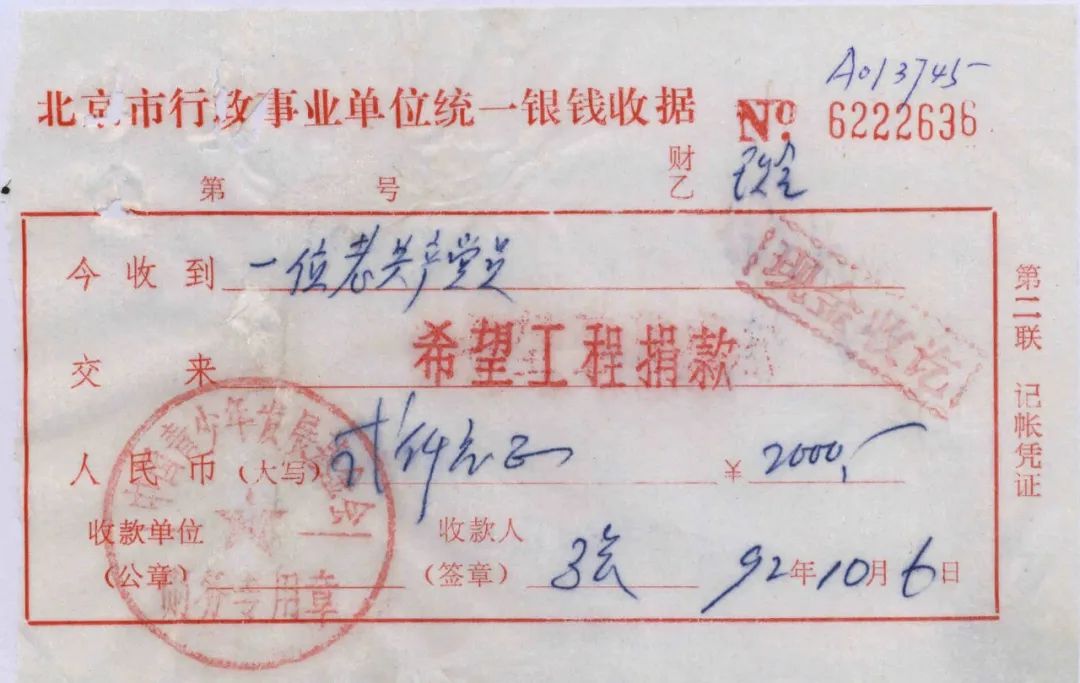 A013745
北京市行政事业单位统一银钱收据 No. 6222636
第 号 财乙 现金
今收到 一位老共产党员
现金收讫
交来 希望工程捐款
人民币(大写) 贰仟元正 ¥ 2000,-
收款单位 收款人
(公章) (签章) 92年10月6日
中国青少年发展基金会
财务专用章
第二联 记帐凭证